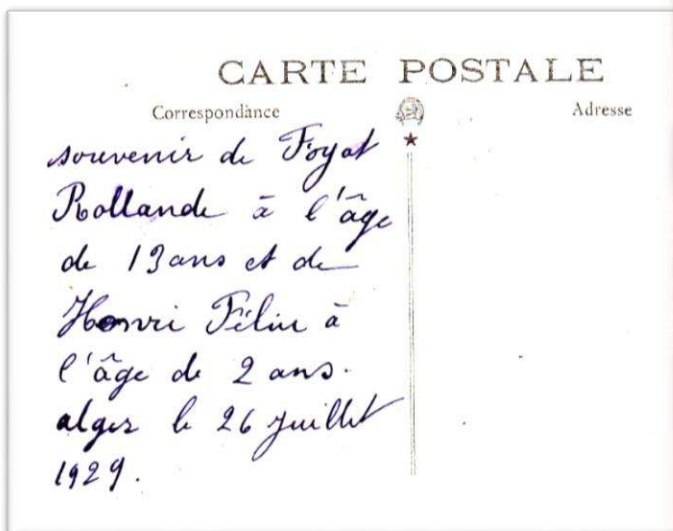 CARTE POSTALE
Correspondance
Adresse
souvenir de Foyat
Rollande à l'âge
de 13 ans et de
Henri Félix à
l'âge de 2 ans.
alger le 26 juillet
1929.